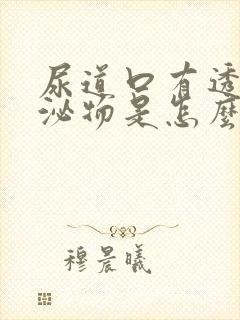 尿道口有透
泌物是怎麼
穆晨曦